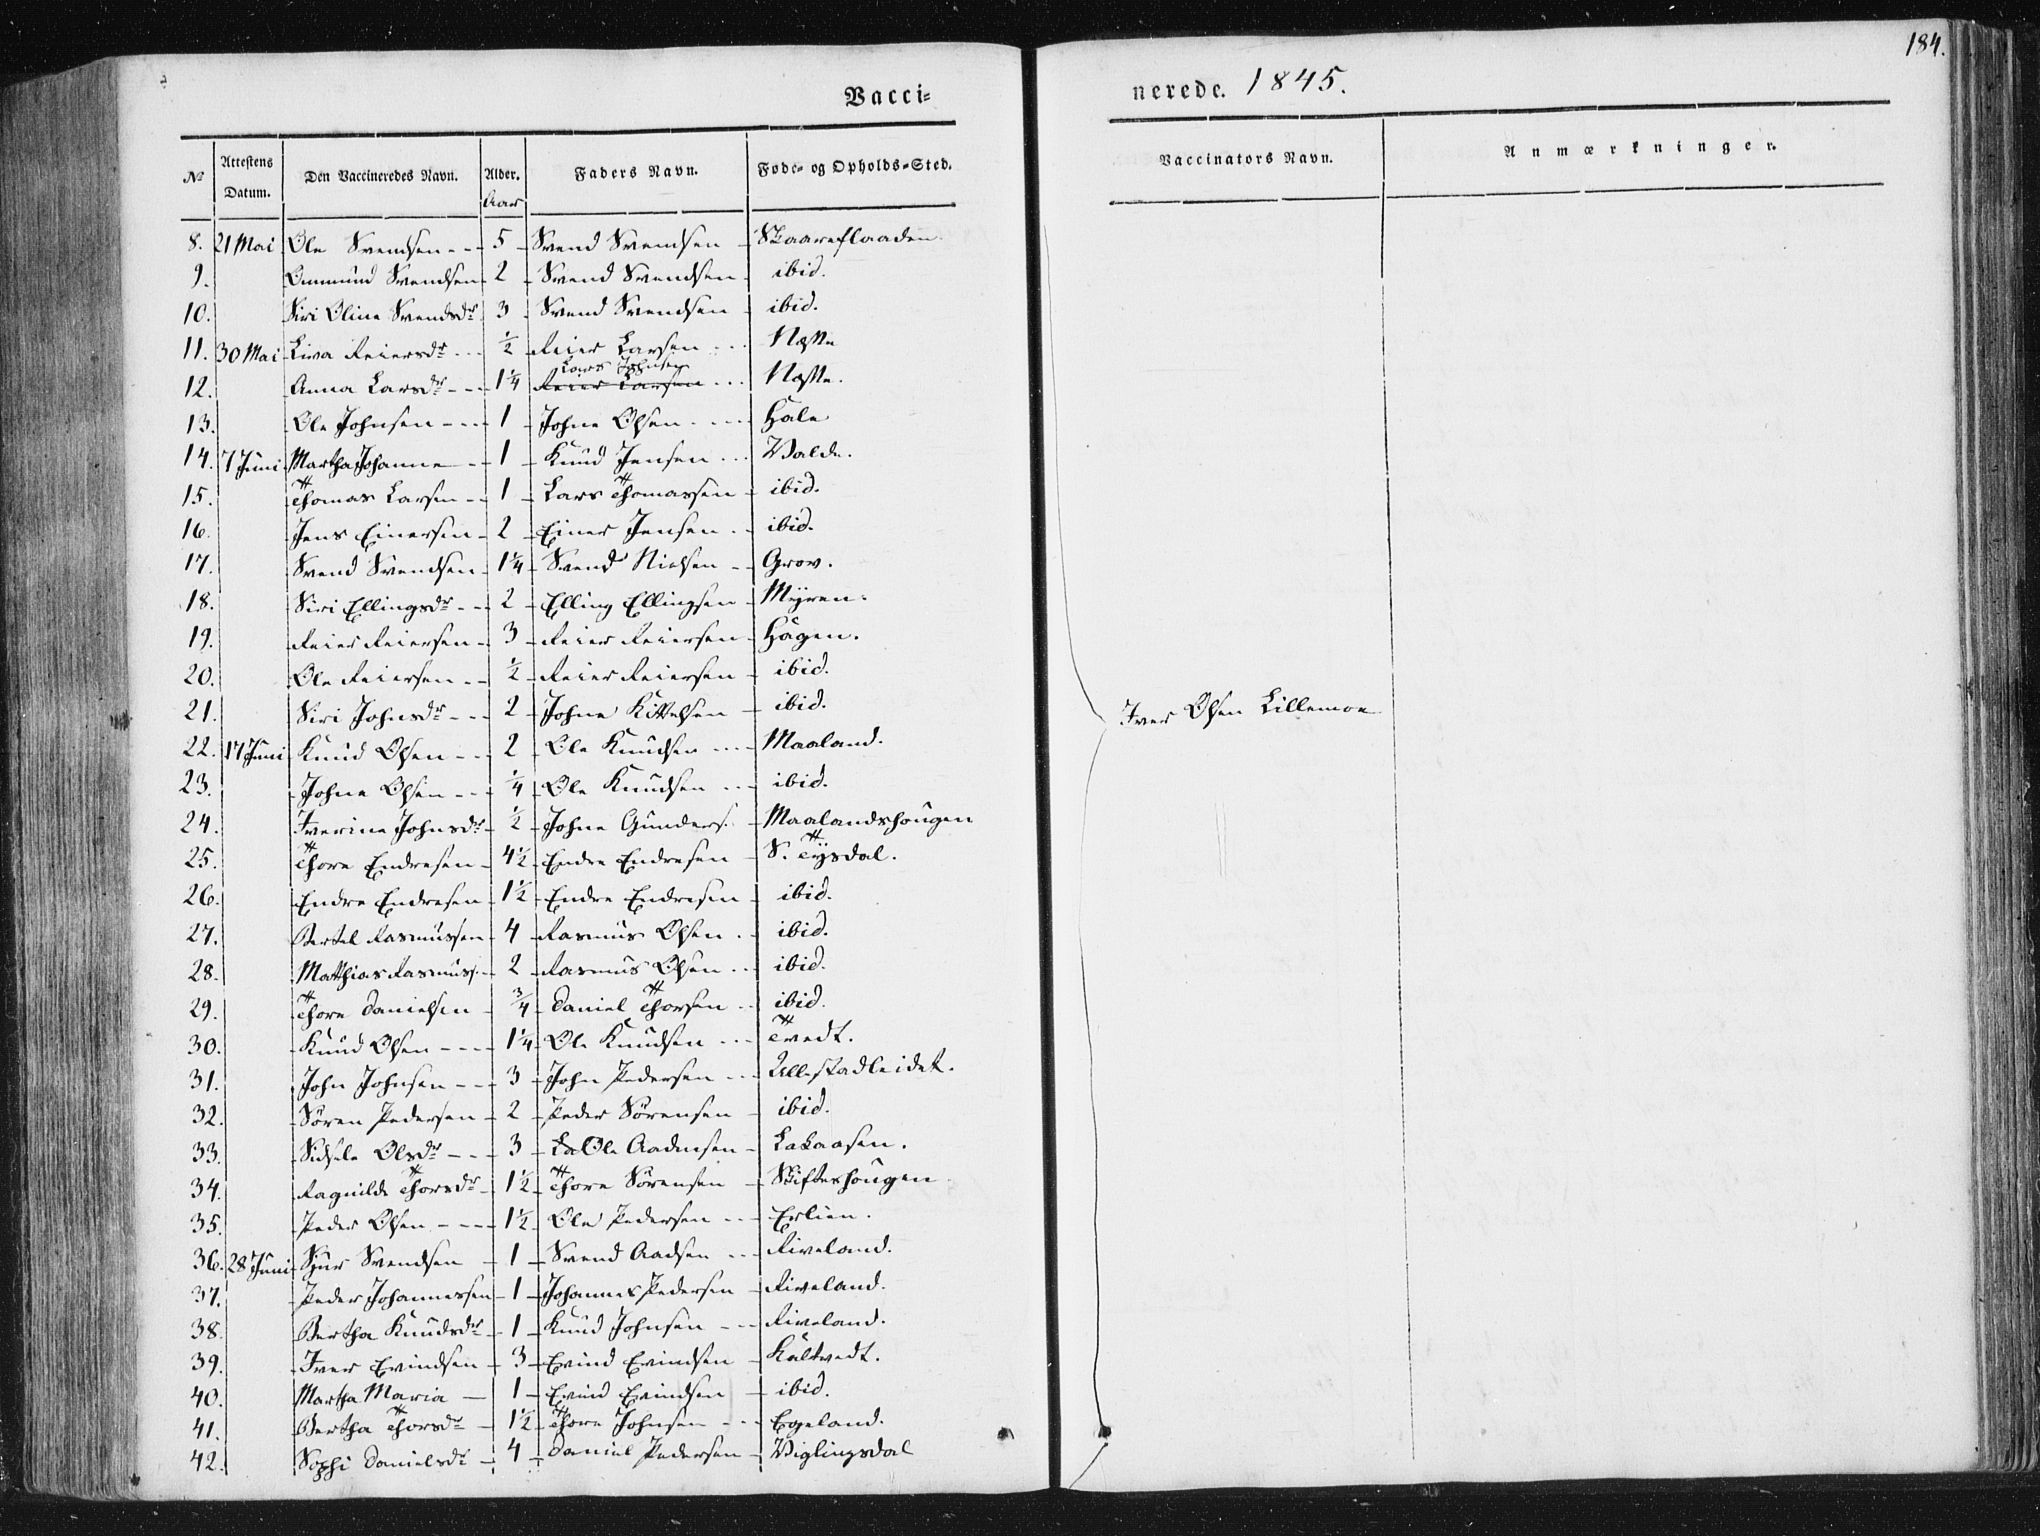 184.
Vacci-
nerede. 1845.
№ Attestens Datum. Den Vaccineredes Navn. Alder. Faders Navn. Føde- og Opholds-Sted. Vaccinators Navn. Anmærkninger.
Aar
8. 21 Mai Ole Svendsen 5 Svend Svendsen Skaareflaaden.
9. Ommund Svendsen 2 Svend Svendsen ibid.
10. Siri Oline Svendsdr 3 Svend Svendsen ibid.
11. 30 Mai Liva Reiersdr ½ Reier Larsen Næsse
12. Anna Larsdr 1¼ Lars Johnsen Reier Larsen Næsse.
13. Ole Johnsen 1 Johne Olsen Hale
14. 7 Juni Martha Johanne 1 Knud Jensen Valde.
15. Thomas Larsen 1 Lars Thomassen ibid.
16. Jens Einersen 2 Einer Jensen ibid.
17. Svend Svendsen 1¼ Svend Nielsen Grov.
18. Siri Ellingsdr 2 Elling Ellingsen Myren.
19. Reier Reiersen 3 Reier Reiersen Hagen.
20. Ole Reiersen ½ Reier Reiersen ibid.
21. Siri Johnsdr 2 Johne Kittelsen ibid.
Iver Olsen Lillemoe
22. 17 Juni Knud Olsen 2 Ole Knudsen Maaland.
23. Johne Olsen ¼ Ole Knudsen ibid.
24. Iverine Johnsdr ½ Johne Gunders. Maalandshougen
25. Thore Endresen 4½ Endre Endresen S. Tysdal.
26. Endre Endresen 1½ Endre Endresen ibid.
27. Bertel Rasmussen 4 Rasmus Olsen ibid.
28. Matthias Rasmuss. 2 Rasmus Olsen ibid.
29. Thore Danielsen ¾ Daniel Thorsen ibid.
30. Knud Olsen 1¼ Ole Knudsen Tvedt.
31. John Johnsen 3 John Pedersen Ullestadleidet.
32. Sören Pedersen 2 Peder Sörensen ibid.
33. Sidsele Olsdr 3 La Ole Aadnesen Lakaasen.
34. Ragnilde Thorsdr 1½ Thore Sörensen Skifteshougen
35. Peder Olsen 1½ Ole Pedersen Erlien.
36. 28 Juni Sjur Svendsen 1 Svend Aadsen Riveland.
37. Peder Johannessen 1 Johannes Pedersen Riveland.
38. Bertha Knudsdr 1 Knud Johnsen Riveland.
39. Iver Evindsen 3 Evind Evindsen Kaltvedt.
40. Martha Maria 1 Evind Evindsen ibid.
41. Bertha Thorsdr 1½ Thore Johnsen Egeland.
42. Sophi Danielsdr 4 Daniel Pedersen Viglingsdal